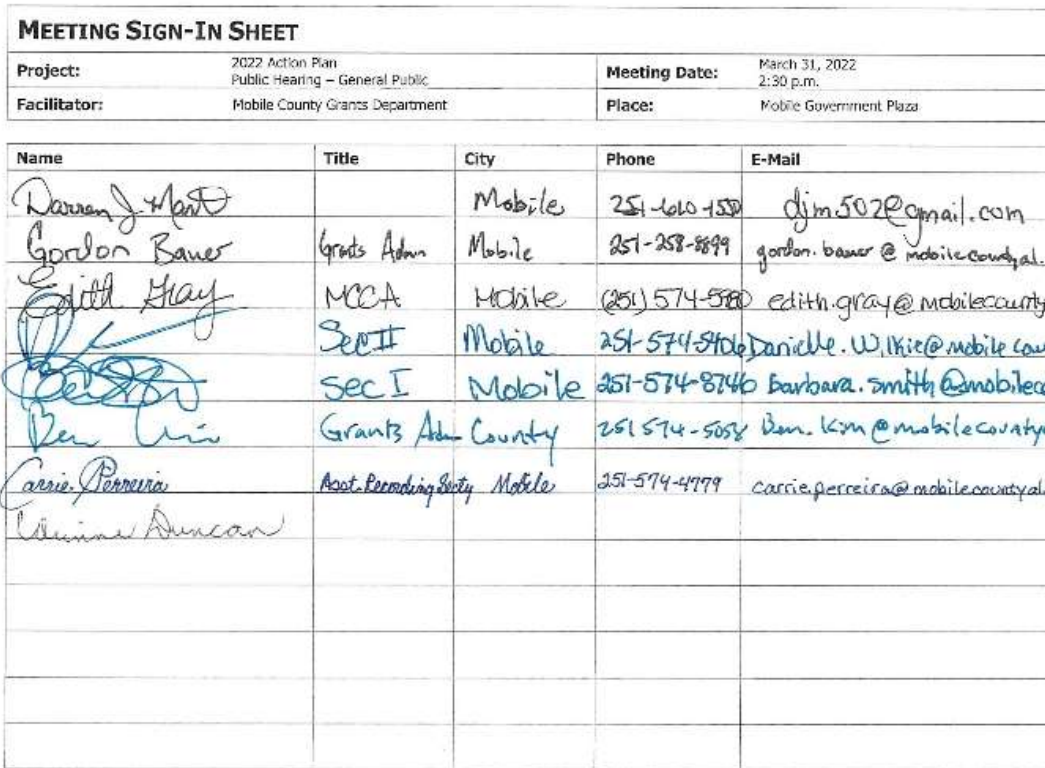 MEETING SIGN-IN SHEET
Project: 2022 Action Plan Meeting Date: March 31, 2022
Public Hearing – General Public 2:30 p.m.
Facilitator: Mobile County Grants Department Place: Mobile Government Plaza
Name Title City Phone E-Mail
Darren J. Mobile djm502@gmail.com
Gordon Bauer Grants Admn Mobile 251-258-8899 gordon.bauer@mobilecountyal.
Edith Gray MCCA Mobile (251) 574-5980 edith.gray@mobilecounty
Sec II Mobile 251-574-5406 Danielle.Wilkie@mobilecou
Sec I Mobile 251-574-8746 Barbara.smith@mobileco
Ben Kim Grants Adm County 251 574-5058 Ben.kim@mobilecounty
Carrie Perreira Asst. Recording Secty Mobile 251-574-4779 carrie.perreira@mobilecountyal.
Duncan